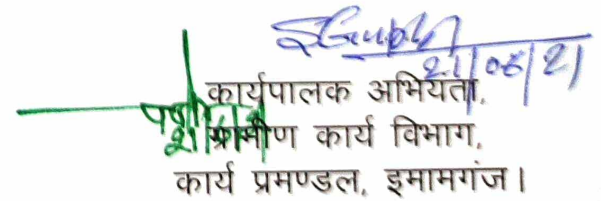 21/06/21
कार्यपालक अभियंता,
ग्रामीण कार्य विभाग,
कार्य प्रमण्डल, इमामगंज।